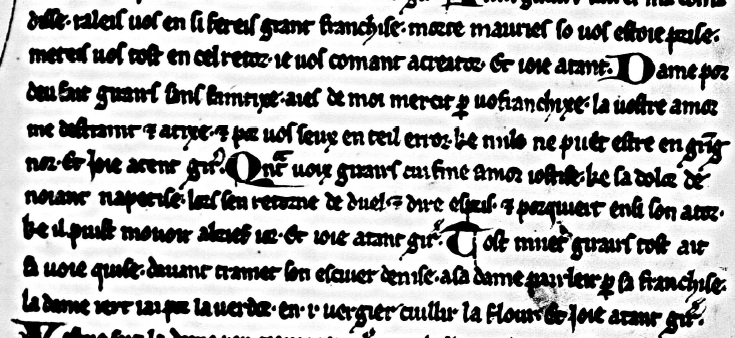 raleis uos en si fereis grant franchise. morte mauries so uos estoie prise.
metteis uos tost en cel retor. ie uos comant a creator. Et ioie atant. Dame por
deu fait girairs sens faintixe. aies de moi mercit ꝑ uo franchixe. la uostre amor
me destraint ⁊ atixe. ⁊ por uos seux en teil error. ke nuls ne puet estre en grig
nor. Et Joie atent gir'. Qnt uoit girairs cui fine amor iostise. ke sa dolor de
noiant napetise. lors sen retorne de duel ⁊ dire espris. ⁊ porquiert ensi son ator.
ke il puist mouoir a brief ior. Et ioie atant gir'. Tost muet girairs tost ait
sa uoie quise. dauant tramet son escuier denise. a sa dame pairleir ꝑ sa franchise.
la dame iert iai por la uerdor. en .i. uergier cuillir la flour. Et Joie atant gir'.